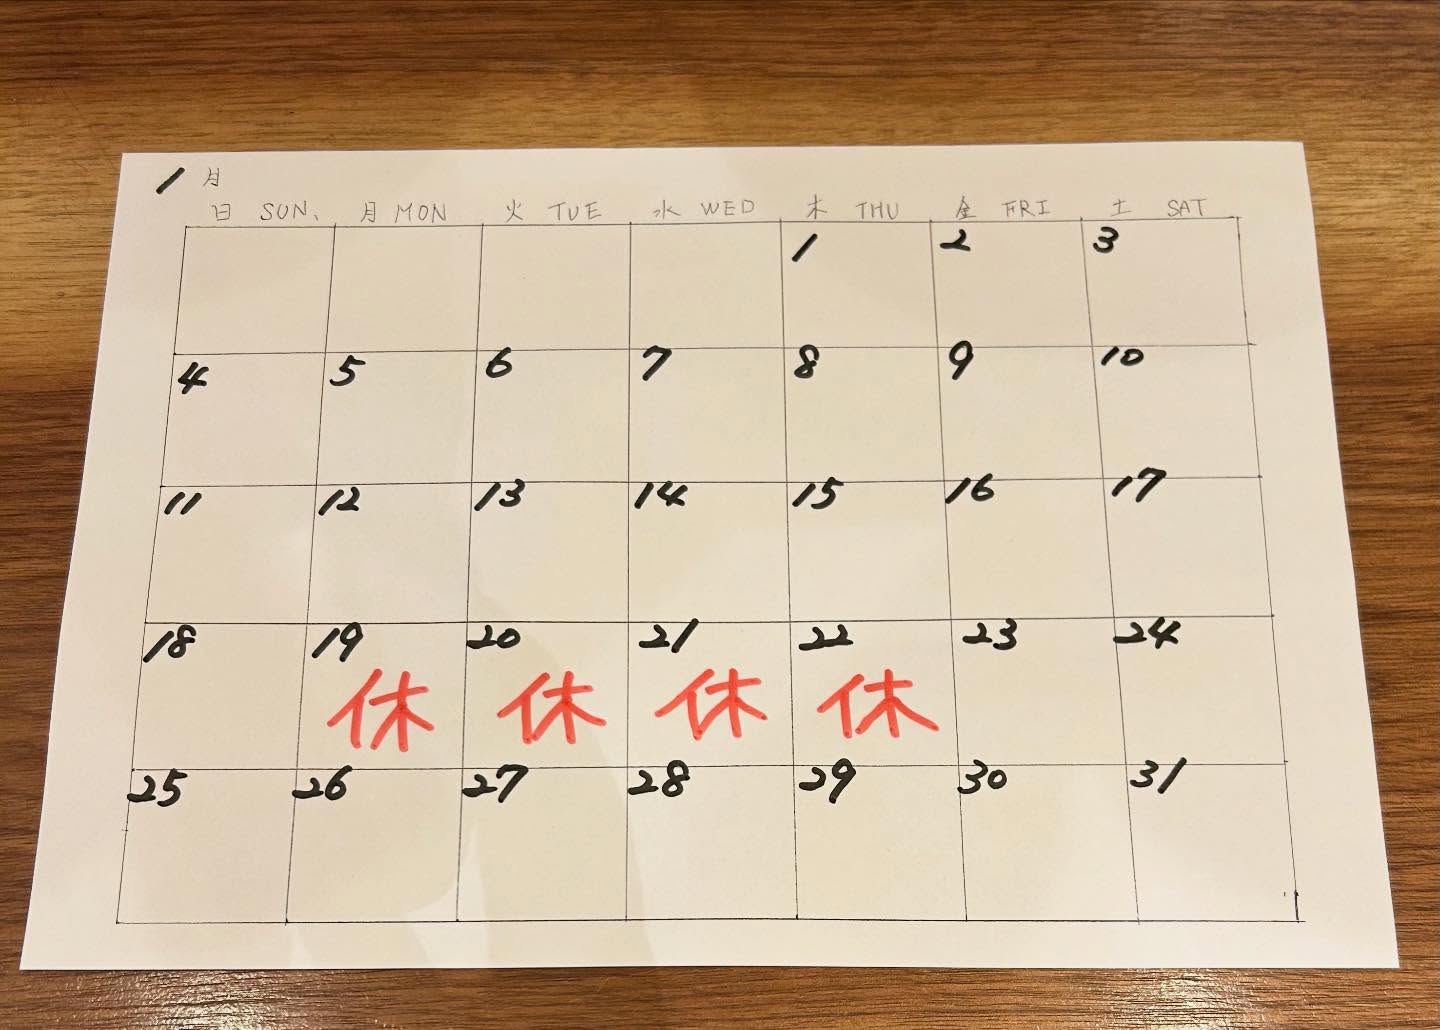 1月
日 SUN. 月 MON 火 TUE 水 WED 木 THU 金 FRI 土 SAT
1 2 3
4 5 6 7 8 9 10
11 12 13 14 15 16 17
18 19 20 21 22 23 24
休 休 休 休
25 26 27 28 29 30 31